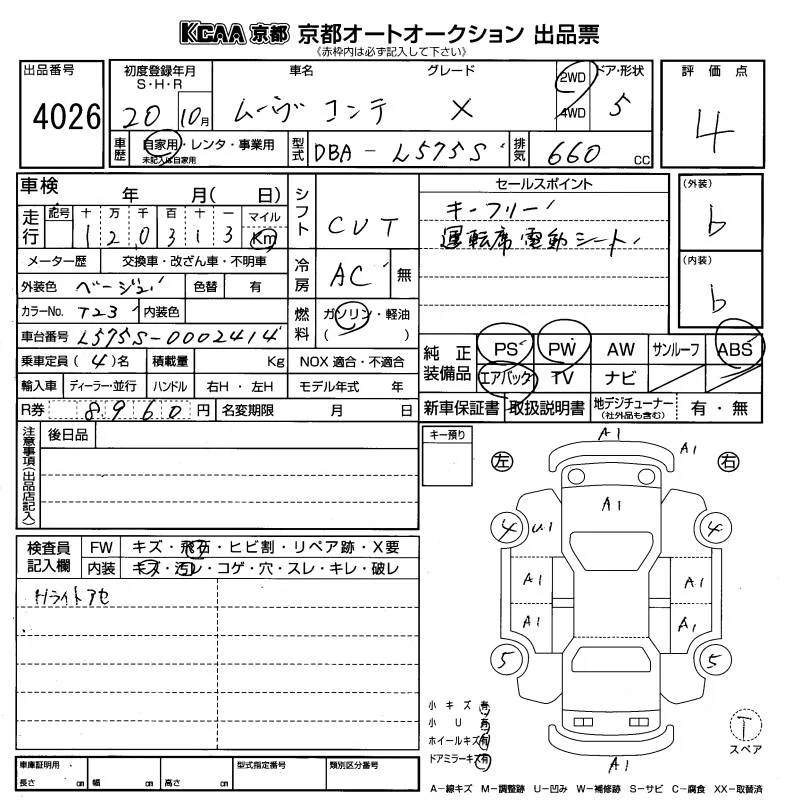 KCAA 京都 京都オートオークション 出品票
《赤枠内は必ず記入して下さい》
出品番号 4026
初度登録年月 S・H・R 20 10月
車名 ムーヴ コンテ
グレード X
2WD 4WD
ドア・形状 5
評価点 4
車歴 自家用・レンタ・事業用
未記入は自家用
型式 DBA-L575S
排気 660 CC
車検 年 月( 日)
シフト CVT
セールスポイント
キーフリー
運転席電動シート
(外装) b
(内装) b
走行 記号 十 万 千 百 十 一 マイル
1 2 0 3 1 3 Km
メーター歴 交換車・改ざん車・不明車
冷房 AC 無
外装色 ベージュ 色替 有
カラーNo. T23 内装色
燃料 ガソリン・軽油
( )
車台番号 L575S-0002414
乗車定員 (4)名 積載量 Kg NOX 適合・不適合
輸入車 ディーラー・並行 ハンドル 右H・左H モデル年式 年
R券 8960円 名変期限 月 日
純正装備品 PS PW AW サンルーフ ABS
エアバッグ TV ナビ
新車保証書 取扱説明書 地デジチューナー (社外品も含む) 有・無
注意事項(出品店記入)
後日品
キー預り
左 右
A1
A1
A1
4 U1 4
A1 A1
A1 A1
5 5
A1
検査員記入欄 FW キズ・飛石・ヒビ割・リペア跡・X要
内装 キズ・汚レ・コゲ・穴・スレ・キレ・破レ
Hライトアセ
小キズ 有
小U 有
ホイールキズ 有
ドアミラーキズ 有
T
スペア
車庫証明用 長さ cm 幅 cm 高さ cm
型式指定番号
類別区分番号
A-線キズ M-調整跡 U-凹み W-補修跡 S-サビ C-腐食 XX-取替済